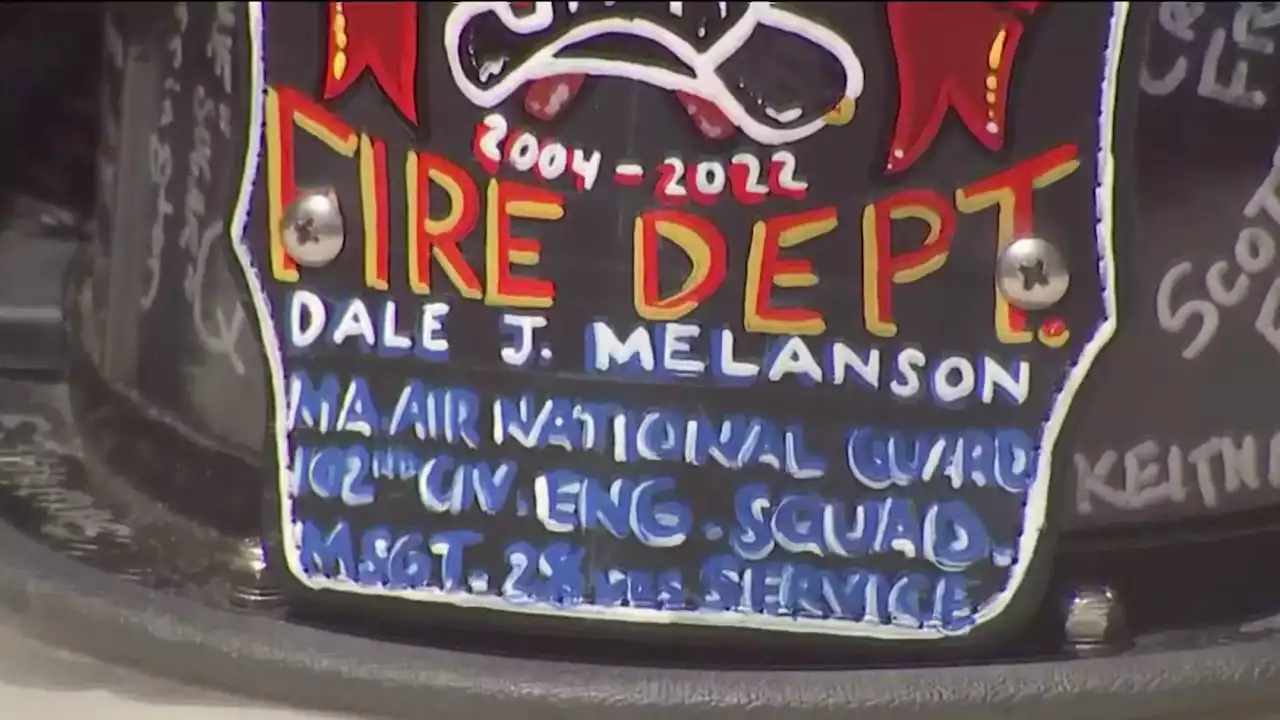 2004-2022
FIRE DEPT.
DALE J. MELANSON
MA. AIR NATIONAL GUARD
102ND CIV. ENG. SQUAD.
MSGT. SERVICE
KEITH